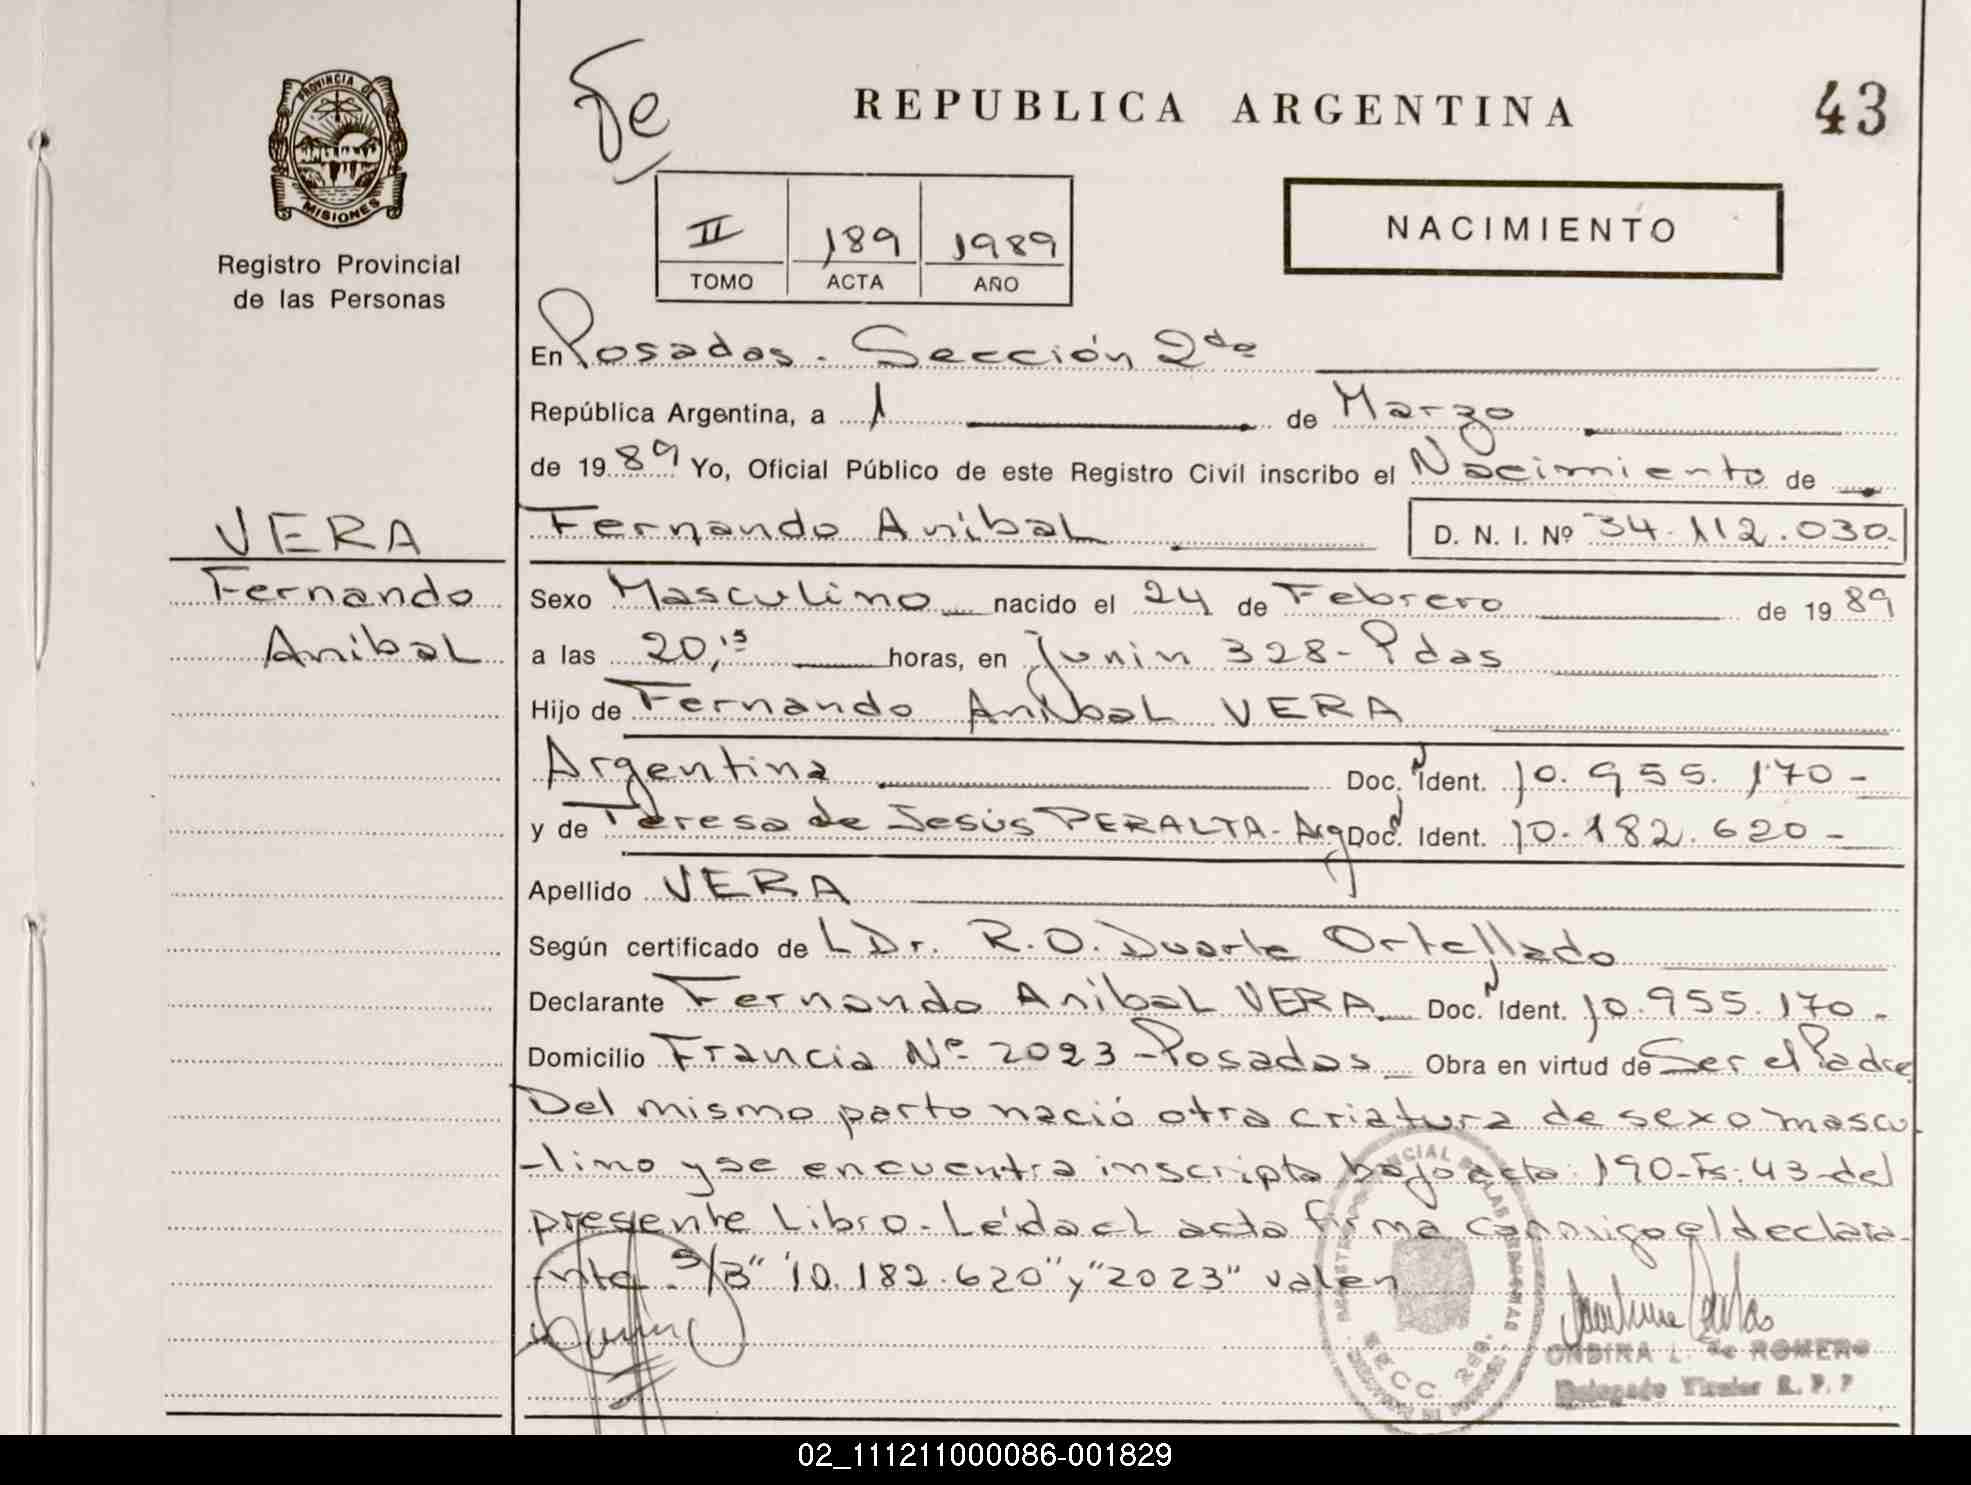 PROVINCIA DE
MISIONES
Registro Provincial
de las Personas
VERA
Fernando
Anibal
REPUBLICA ARGENTINA
43
NACIMIENTO
II 189 1989
TOMO ACTA AÑO
En Posadas. Sección 2da
República Argentina, a 1 de Marzo
de 1989 Yo, Oficial Público de este Registro Civil inscribo el Nacimiento de
Fernando Anibal D. N. I. Nº 34.112.030.
Sexo Masculino nacido el 24 de Febrero de 1989
a las 20,15 horas, en Junin 328-Pdas
Hijo de Fernando Anibal VERA
Argentina Doc. Ident. 10.955.170-
y de Teresa de Jesús PERALTA-Arg Doc. Ident. 10.182.620-
Apellido VERA
Según certificado de L Dr. R.O. Duarte Ortellado
Declarante Fernando Anibal VERA Doc. Ident. 10.955.170-
Domicilio Francia Nº 2023-Posadas Obra en virtud de Ser el Padre
Del mismo parto nació otra criatura de sexo mascu
-lino y se encuentra inscripta bajo acta: 190-Fs: 43-del
presente Libro-Leída el acta firma conmigo el declara-
nte. S/B "10.182.620" y "2023" valen
SECC. 2da.
ONDINA L. de ROMERO
Delegado Titular R. P. P
02_111211000086-001829